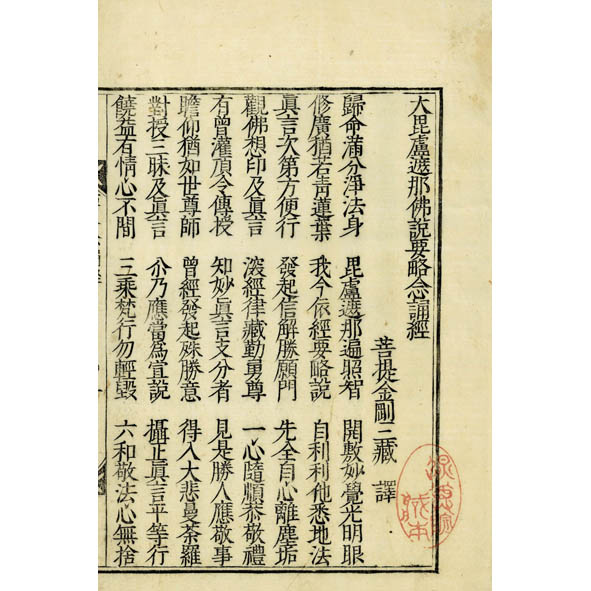 大毘盧遮那佛說要略念誦經
菩提金剛三藏 譯
歸命滿分淨法身 毘盧遮那遍照智 開敷妙覺光明眼
修廣猶若靑蓮葉 我今依經要略說 自利利他悉地法
眞言次第方便行 發起信解勝願門 先全自心離塵垢
觀佛想印及眞言 深經律藏勤勇尊 一心隨順恭敬禮
有曾灌頂令傳授 知妙眞言支分者 見是勝人應敬事
瞻仰猶如世尊師 曾經發起殊勝意 得入大悲曼荼羅
對授三昧及眞言 尒乃應當為宣說 攝正眞言平等行
饒益有情心不間 三乘梵行勿輕毀 六和敬法心無捨